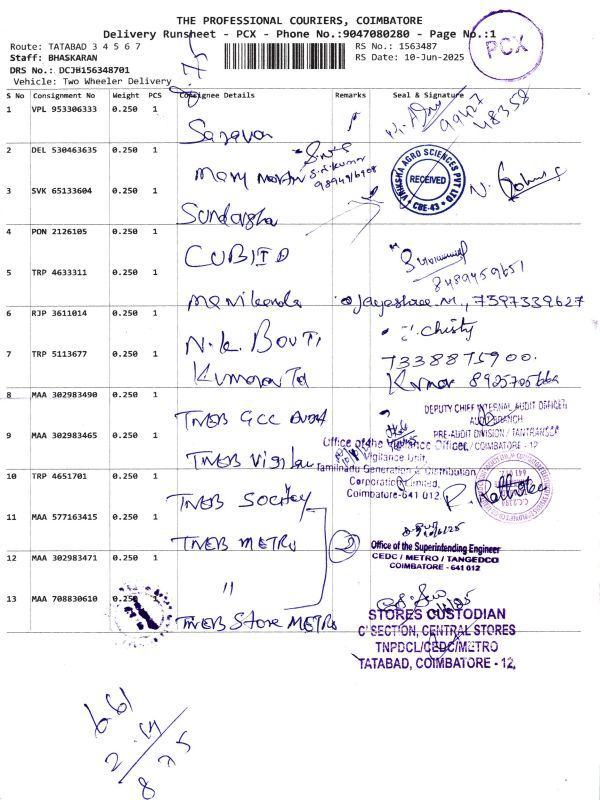 THE PROFESSIONAL COURIERS, COIMBATORE
Delivery Runsheet - PCX - Phone No.:9047080280 - Page No.:1
PCX
Route: TATABAD 3 4 5 6 7
RS No.: 1563487
Staff: BHASKARAN
RS Date: 10-Jun-2025
DRS No.: DCJH156348701
Vehicle: Two Wheeler Delivery
S No Consignment No Weight PCS Consignee Details Remarks Seal & Signature
1 VPL 953306333 0.250 1
99427
48358
2 DEL 530463635 0.250 1
Mary
VRIKSHA AGRO SCIENCES PVT LTD
RECEIVED
CBE-43
3 SVK 65133604 0.250 1
4 PON 2126105 0.250 1
CUBIID
8489459651
5 TRP 4633311 0.250 1
Jayeshree.M., 7397339627
6 RJP 3611014 0.250 1
N.K. BOUTI
Chisty
7338875900.
7 TRP 5113677 0.250 1
Kumar
8 MAA 302983490 0.250 1
TNEB GCC Audit
DEPUTY CHIEF INTERNAL AUDIT OFFICER
AUDIT BRANCH
PRE-AUDIT DIVISION / TANTRANSCO
COIMBATORE - 12
9 MAA 302983465 0.250 1
TNEB
Office of the Vigilance Officer,
Vigilance Unit,
Tamilnadu Generation & Distribution
Corporation Limited,
Coimbatore-641 012
10 TRP 4651701 0.250 1
TNEB
11 MAA 577163415 0.250 1
TNEB METRO
2
Office of the Superintending Engineer
CEDC / METRO / TANGEDCO
COIMBATORE - 641 012
12 MAA 302983471 0.250 1
"
13 MAA 708830610 0.250 1
TNEB Store METRO
STORES CUSTODIAN
C' SECTION, CENTRAL STORES
TNPDCL/CEDC/METRO
TATABAD, COIMBATORE - 12,